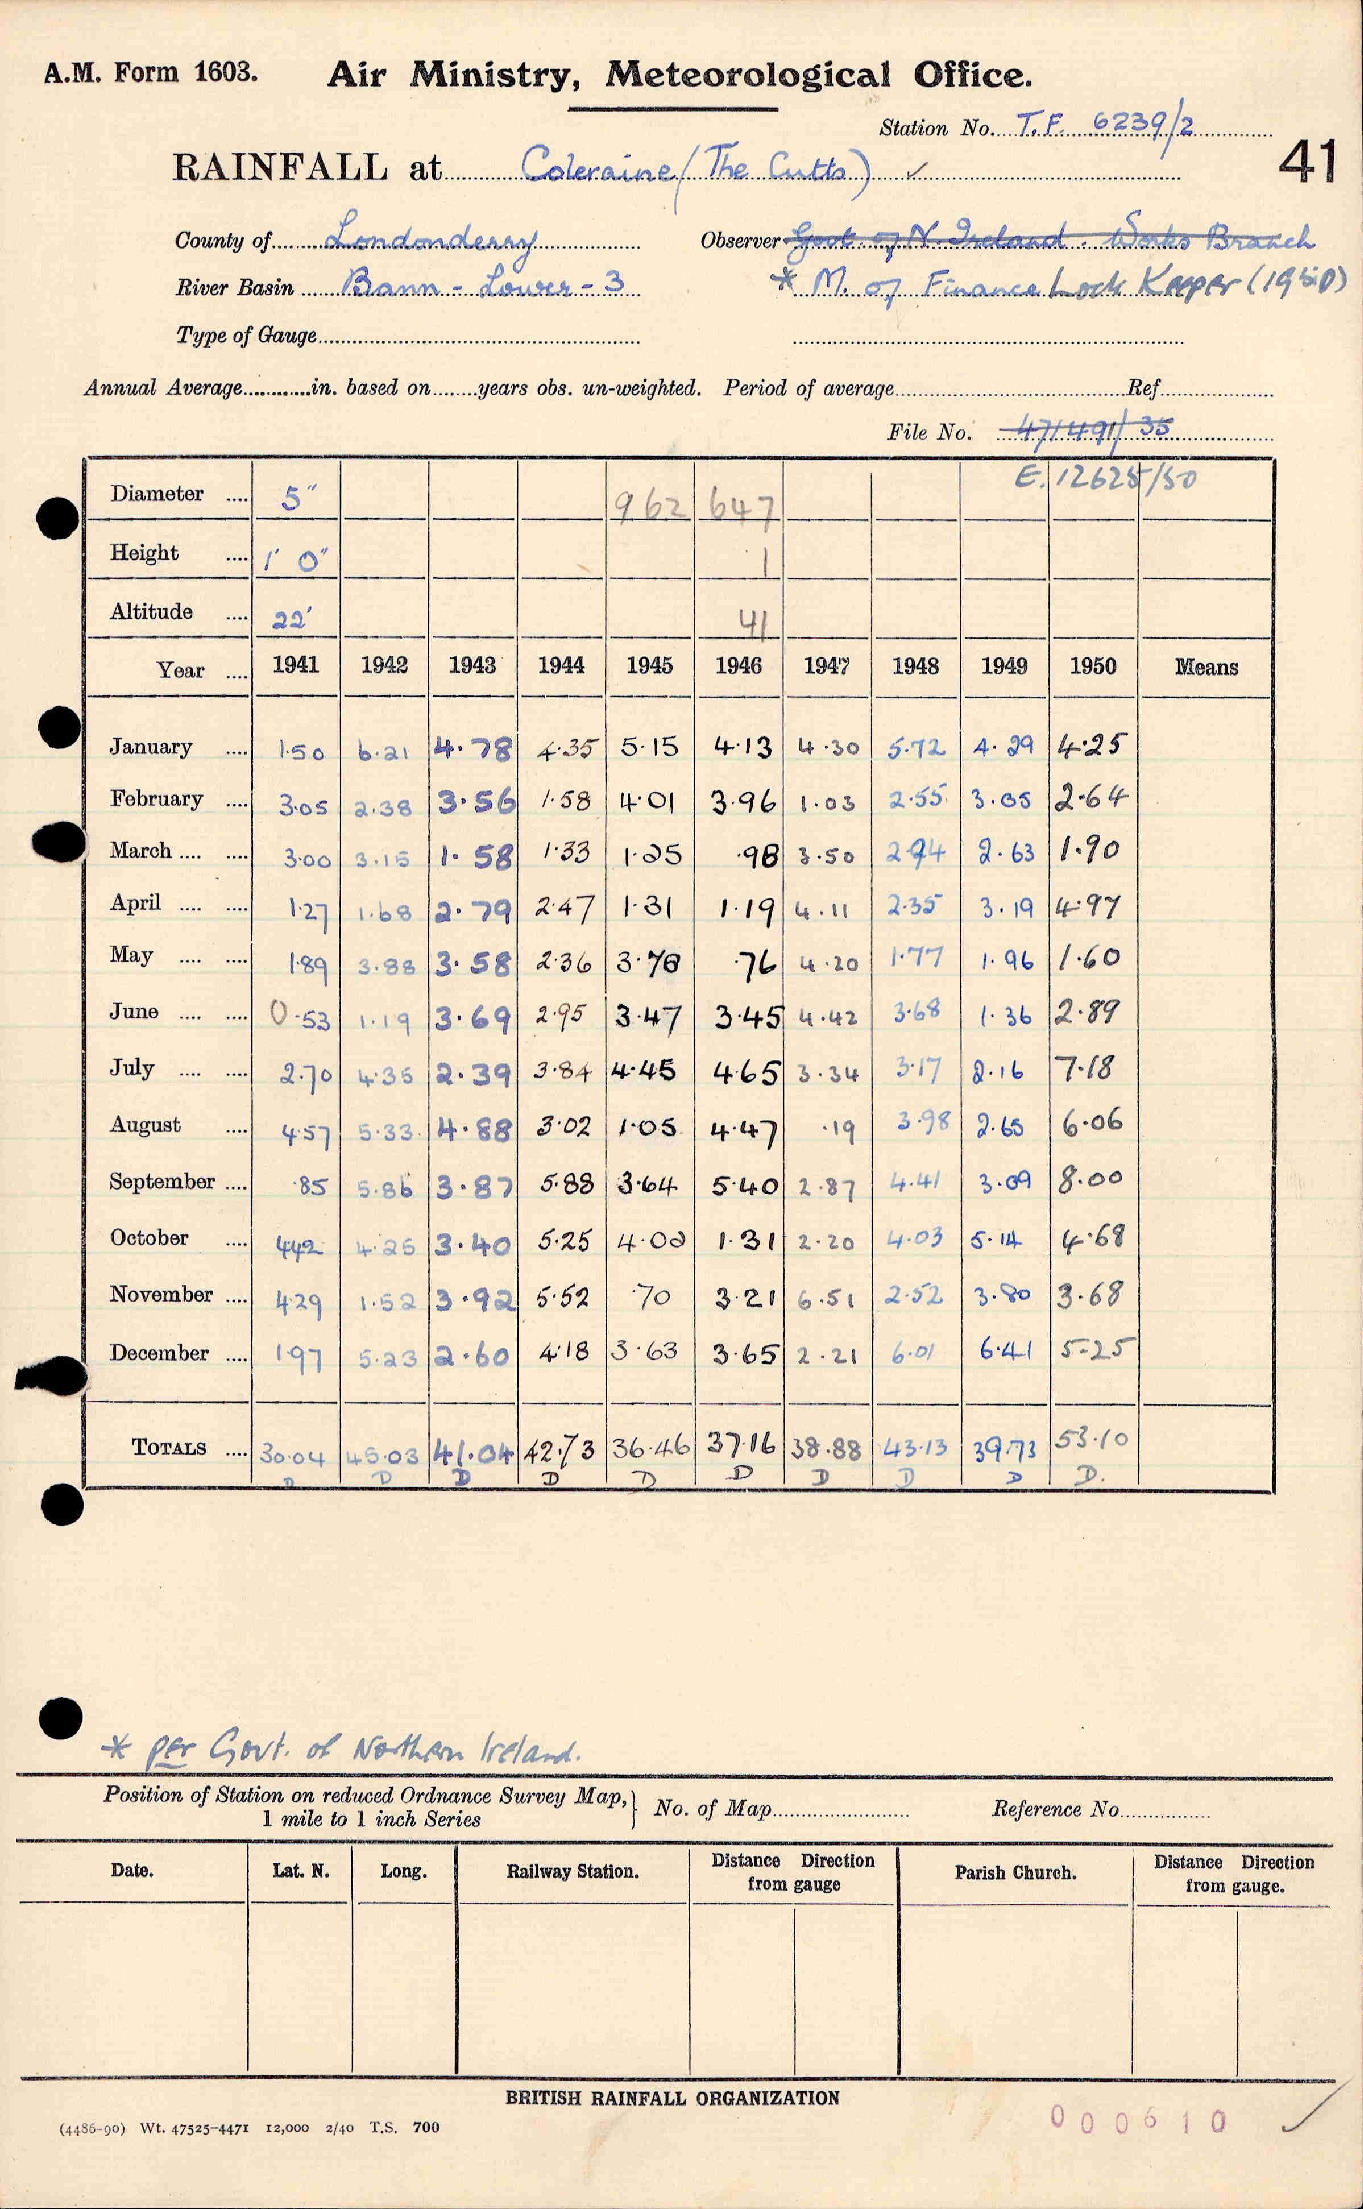 A.M. Form 1603. Air Ministry, Meteorological Office.
Station No. T.F. 6239/2
RAINFALL at Coleraine (The Cutts) ✓ 41
County of Londonderry Observer Govt. of N. Ireland. Works Branch
River Basin Bann - Lower - 3 * M. of Finance Lock Keeper (1950)
Type of Gauge
Annual Average............in. based on........years obs. un-weighted. Period of average Ref
File No. 471491/35
E. 12625/50
Diameter .... 5" 962 647
Height .... 1' 0" 1
Altitude .... 22' 41
Year .... 1941 1942 1943 1944 1945 1946 1947 1948 1949 1950 Means
January .... 1.50 6.21 4.78 4.35 5.15 4.13 4.30 5.72 4.29 4.25
February .... 3.05 2.38 3.56 1.58 4.01 3.96 1.03 2.55 3.05 2.64
March .... .... 3.00 3.15 1.58 1.33 1.25 .98 3.50 2.94 2.63 1.90
April .... .... 1.27 1.68 2.79 2.47 1.31 1.19 4.11 2.35 3.19 4.97
May .... .... 1.89 3.88 3.58 2.36 3.78 .76 4.20 1.77 1.96 1.60
June .... .... 0.53 1.19 3.69 2.95 3.47 3.45 4.42 3.68 1.36 2.89
July .... .... 2.70 4.35 2.39 3.84 4.45 4.65 3.34 3.17 2.16 7.18
August .... 4.57 5.33 4.88 3.02 1.05 4.47 .19 3.98 2.65 6.06
September .... .85 5.86 3.87 5.88 3.64 5.40 2.87 4.41 3.09 8.00
October .... 4.42 4.25 3.40 5.25 4.02 1.31 2.20 4.03 5.14 4.68
November .... 4.29 1.52 3.92 5.52 .70 3.21 6.51 2.52 3.80 3.68
December .... 1.97 5.23 2.60 4.18 3.63 3.65 2.21 6.01 6.41 5.25
TOTALS .... 30.04 45.03 41.04 42.73 36.46 37.16 38.88 43.13 39.73 53.10
D D D D D D D D D D.
* per Govt. of Northern Ireland.
Position of Station on reduced Ordnance Survey Map, } No. of Map Reference No
1 mile to 1 inch Series
Date. Lat. N. Long. Railway Station. Distance Direction from gauge Parish Church. Distance Direction from gauge.
BRITISH RAINFALL ORGANIZATION
(4486-90) Wt. 47525-4471 12,000 2/40 T.S. 700
000610 ✓